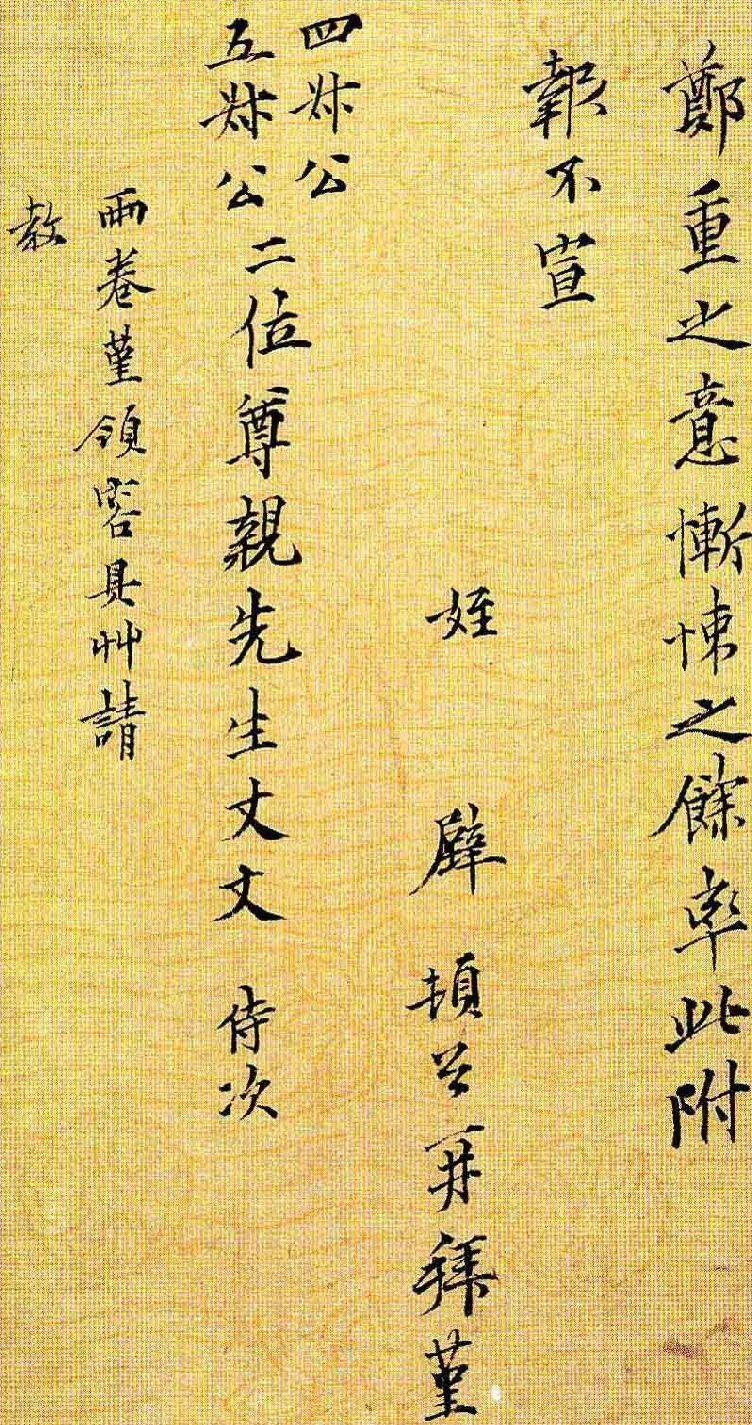 鄭重之意慚悚之餘率此附
報不宣
姪 辟 頓首再拜堇
四叔公
五叔公二位尊親先生丈丈 侍次
兩卷堇領容具艸請
教